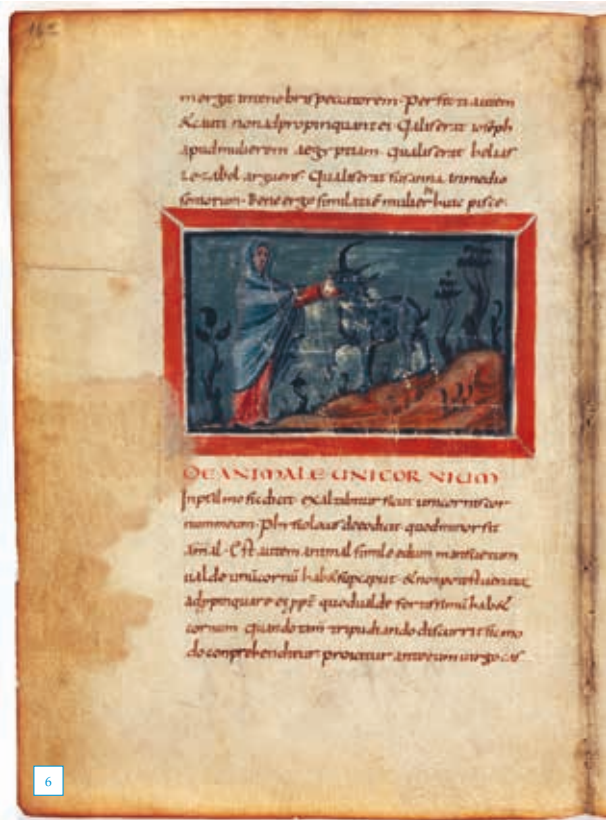 mergit in tenebris peccatorem. Perfecti autem
& cauti non adpropinquant ei. Qualis erat ioseph
apud mulierem aegyptiam. Qualis erat helias
iezabel arguens. Qualis erat susanna in medio
seniorum. Bene ergo mulier huic pisce.
DE ANIMALE UNICORNIUM
In psalmo sic dicit exaltabitur sicut unicornis cor
num meum. Phisiolocus dicit quod minor sit
animal. Est autem animal simile edum mansuetum
ualde unum cornu habet super caput. & non potest uenator
adpropinquare ei quod ualde fortissimum habet
cornum. Quando tripudiando discurrit sic mo
do conprehenditur proicitur ante eum uirgo cas
6